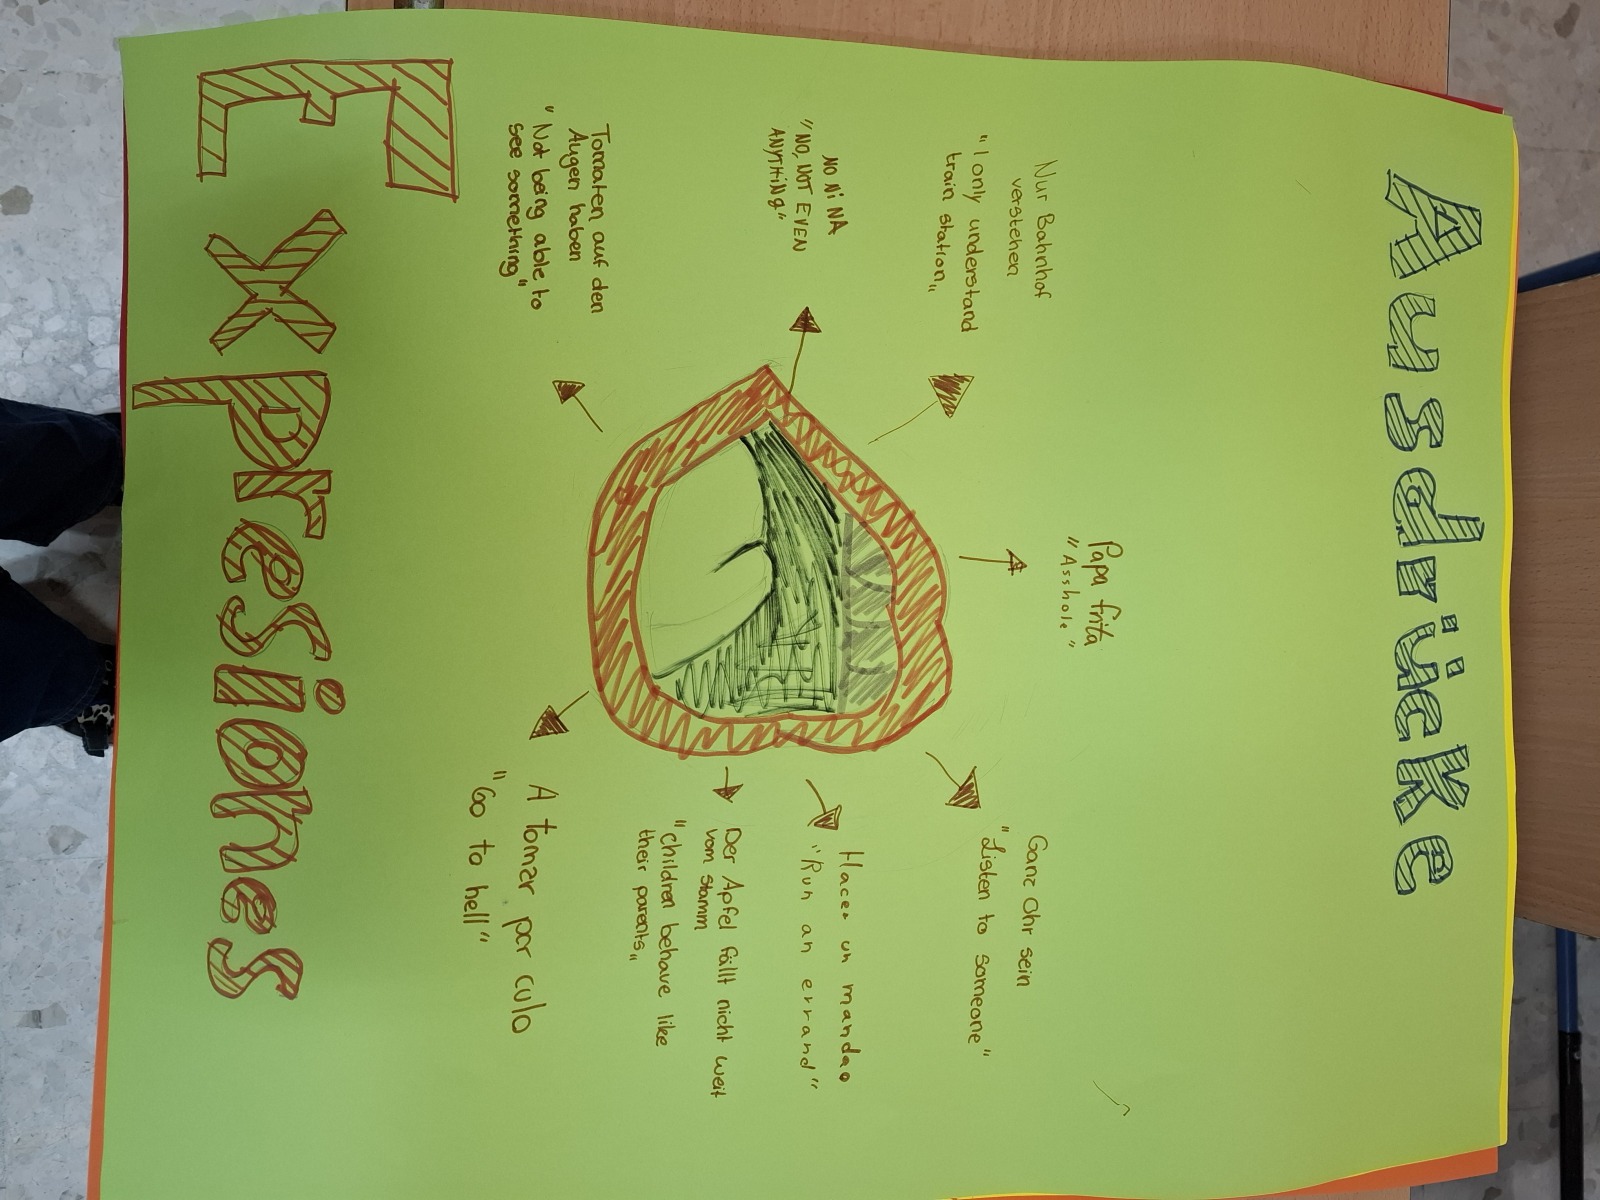 Ausdrücke
Papa frita
"Asshole"
Nur Bahnhof
verstehen
"I only understand
train station"
NO Ni NA
"NO, NOT EVEN
ANYTHING"
Tomaten auf den
Augen haben
"Not being able to
see something"
Ganz Ohr sein
"Listen to someone"
Hacer un mandao
"Run an errand"
Der Apfel fällt nicht weit
vom stamm
"children behave like
their parents"
A tomar por culo
"Go to hell"
Expresiones